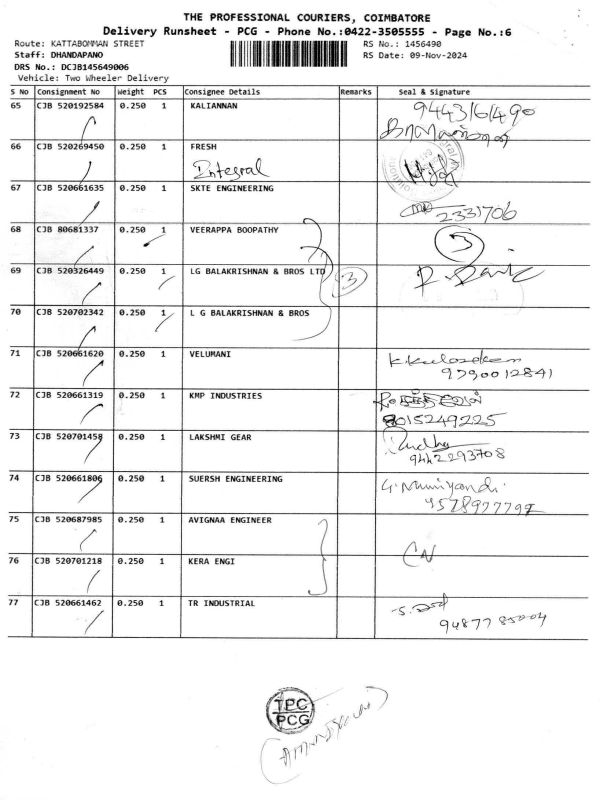 THE PROFESSIONAL COURIERS, COIMBATORE
Delivery Runsheet - PCG - Phone No.:0422-3505555 - Page No.:6
Route: KATTABOMMAN STREET RS No.: 1456490
Staff: DHANDAPANO RS Date: 09-Nov-2024
DRS No.: DCJB145649006
Vehicle: Two Wheeler Delivery
S No Consignment No Weight PCS Consignee Details Remarks Seal & Signature
65 CJB 520192584 0.250 1 KALIANNAN
66 CJB 520269450 0.250 1 FRESH
Integral
67 CJB 520661635 0.250 1 SKTE ENGINEERING
2331706
68 CJB 80681337 0.250 1 VEERAPPA BOOPATHY 3
69 CJB 520326449 0.250 1 LG BALAKRISHNAN & BROS LTD 3
70 CJB 520702342 0.250 1 L G BALAKRISHNAN & BROS
71 CJB 520661620 0.250 1 VELUMANI
9790012841
72 CJB 520661319 0.250 1 KMP INDUSTRIES
8015249225
73 CJB 520701458 0.250 1 LAKSHMI GEAR
9442293708
74 CJB 520661806 0.250 1 SUERSH ENGINEERING
75 CJB 520687985 0.250 1 AVIGNAA ENGINEER
76 CJB 520701218 0.250 1 KERA ENGI
77 CJB 520661462 0.250 1 TR INDUSTRIAL
94877 85004
TPC
PCG